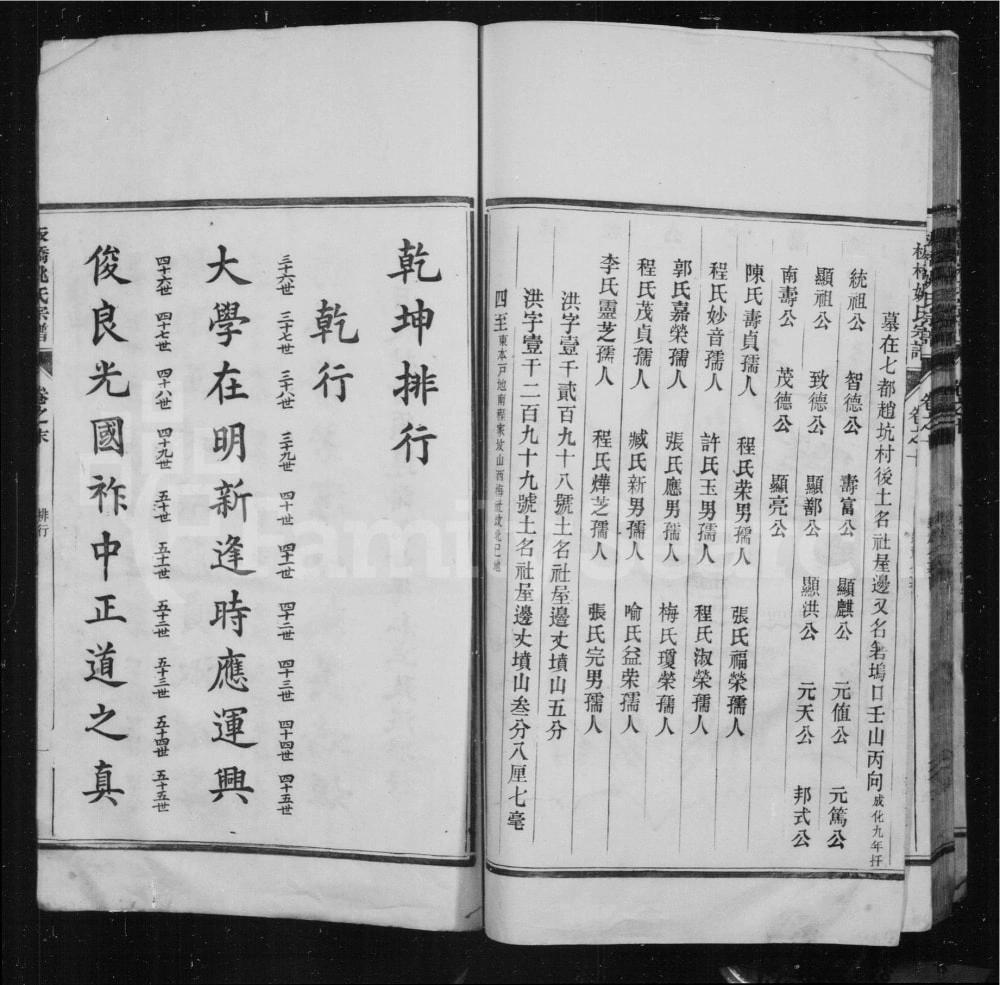 墓在七都趙坑村後土名社屋邊又名砻塢口壬山丙向成化九年扦
統祖公 智德公 壽富公 顯麒公 元值公 元篤公
顯祖公 致德公 顯鄯公 顯洪公 元天公 邦式公
南壽公 茂德公 顯亮公
陳氏壽貞孺人 程氏荣男孺人 張氏福榮孺人
程氏妙音孺人 許氏玉男孺人 程氏淑榮孺人
郭氏嘉榮孺人 張氏應男孺人 梅氏瓊榮孺人
程氏茂貞孺人 臧氏新男孺人 喻氏益荣孺人
李氏靈芝孺人 程氏燁芝孺人 張氏完男孺人
洪字壹千貳百九十八號土名社屋邊丈墳山五分
洪字壹千二百九十九號土名社屋邊丈墳山叁分八厘七毫
四至東本戸地南程家坟山西梅社坟北己地
乾坤排行
乾行
三十六世 三十七世 三十八世 三十九世 四十世 四十一世 四十二世 四十三世 四十四世 四十五世
大學在明新逢時應運興
四十六世 四十七世 四十八世 四十九世 五十世 五十一世 五十二世 五十三世 五十四世 五十五世
俊良光國祚中正道之真
板橋姚氏宗譜 卷之末 排行